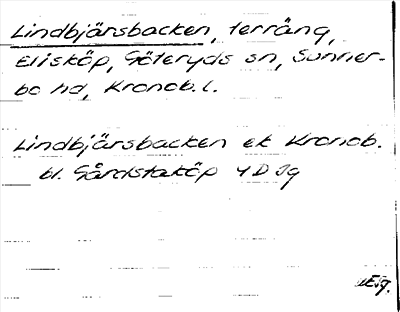 Lindbjärsbacken, terräng,
Elisköp, Göteryds sn, Sunner-
bo hd, Kronob. l.
Lindbjärsbacken ek Kronob.
bl. Gårdstaköp 4 D Jg